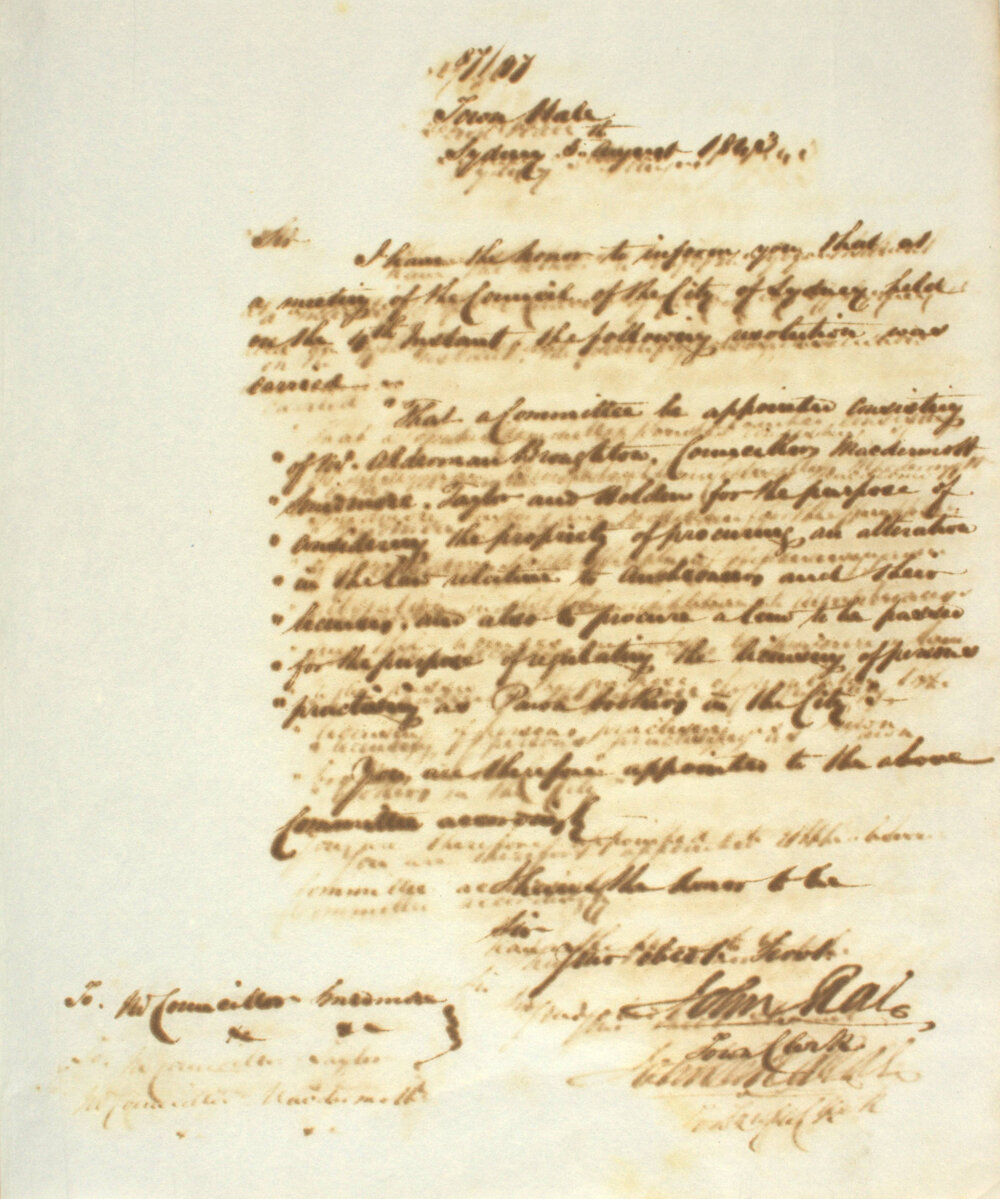 87/87
Town Hall
Sydney 5th August 1843
Sir
I have the honor to inform you that at
a meeting of the Council of the City of Sydney held
on the 4th Instant, the following resolution was
carried
"That a Committee be appointed consisting
" of Mr. Alderman Broughton, Councillors Macdermott
" Smidmore, Taylor and Holden for the purpose of
" considering the propriety of procuring an alteration
" in the law relative to Auctioneers and their
" licenses, and also to procure a law to be passed
" for the purpose of regulating the licensing of persons
" practising as Pawn brokers in the City".
You are therefore appointed to the above
Committee accordingly
I have the honor to be
Sir
Your obedt. Servt.
John Rae
Town Clerk
To. Mr Councillor Smidmore
Mr Councillor Taylor
Mr Councillor Macdermott